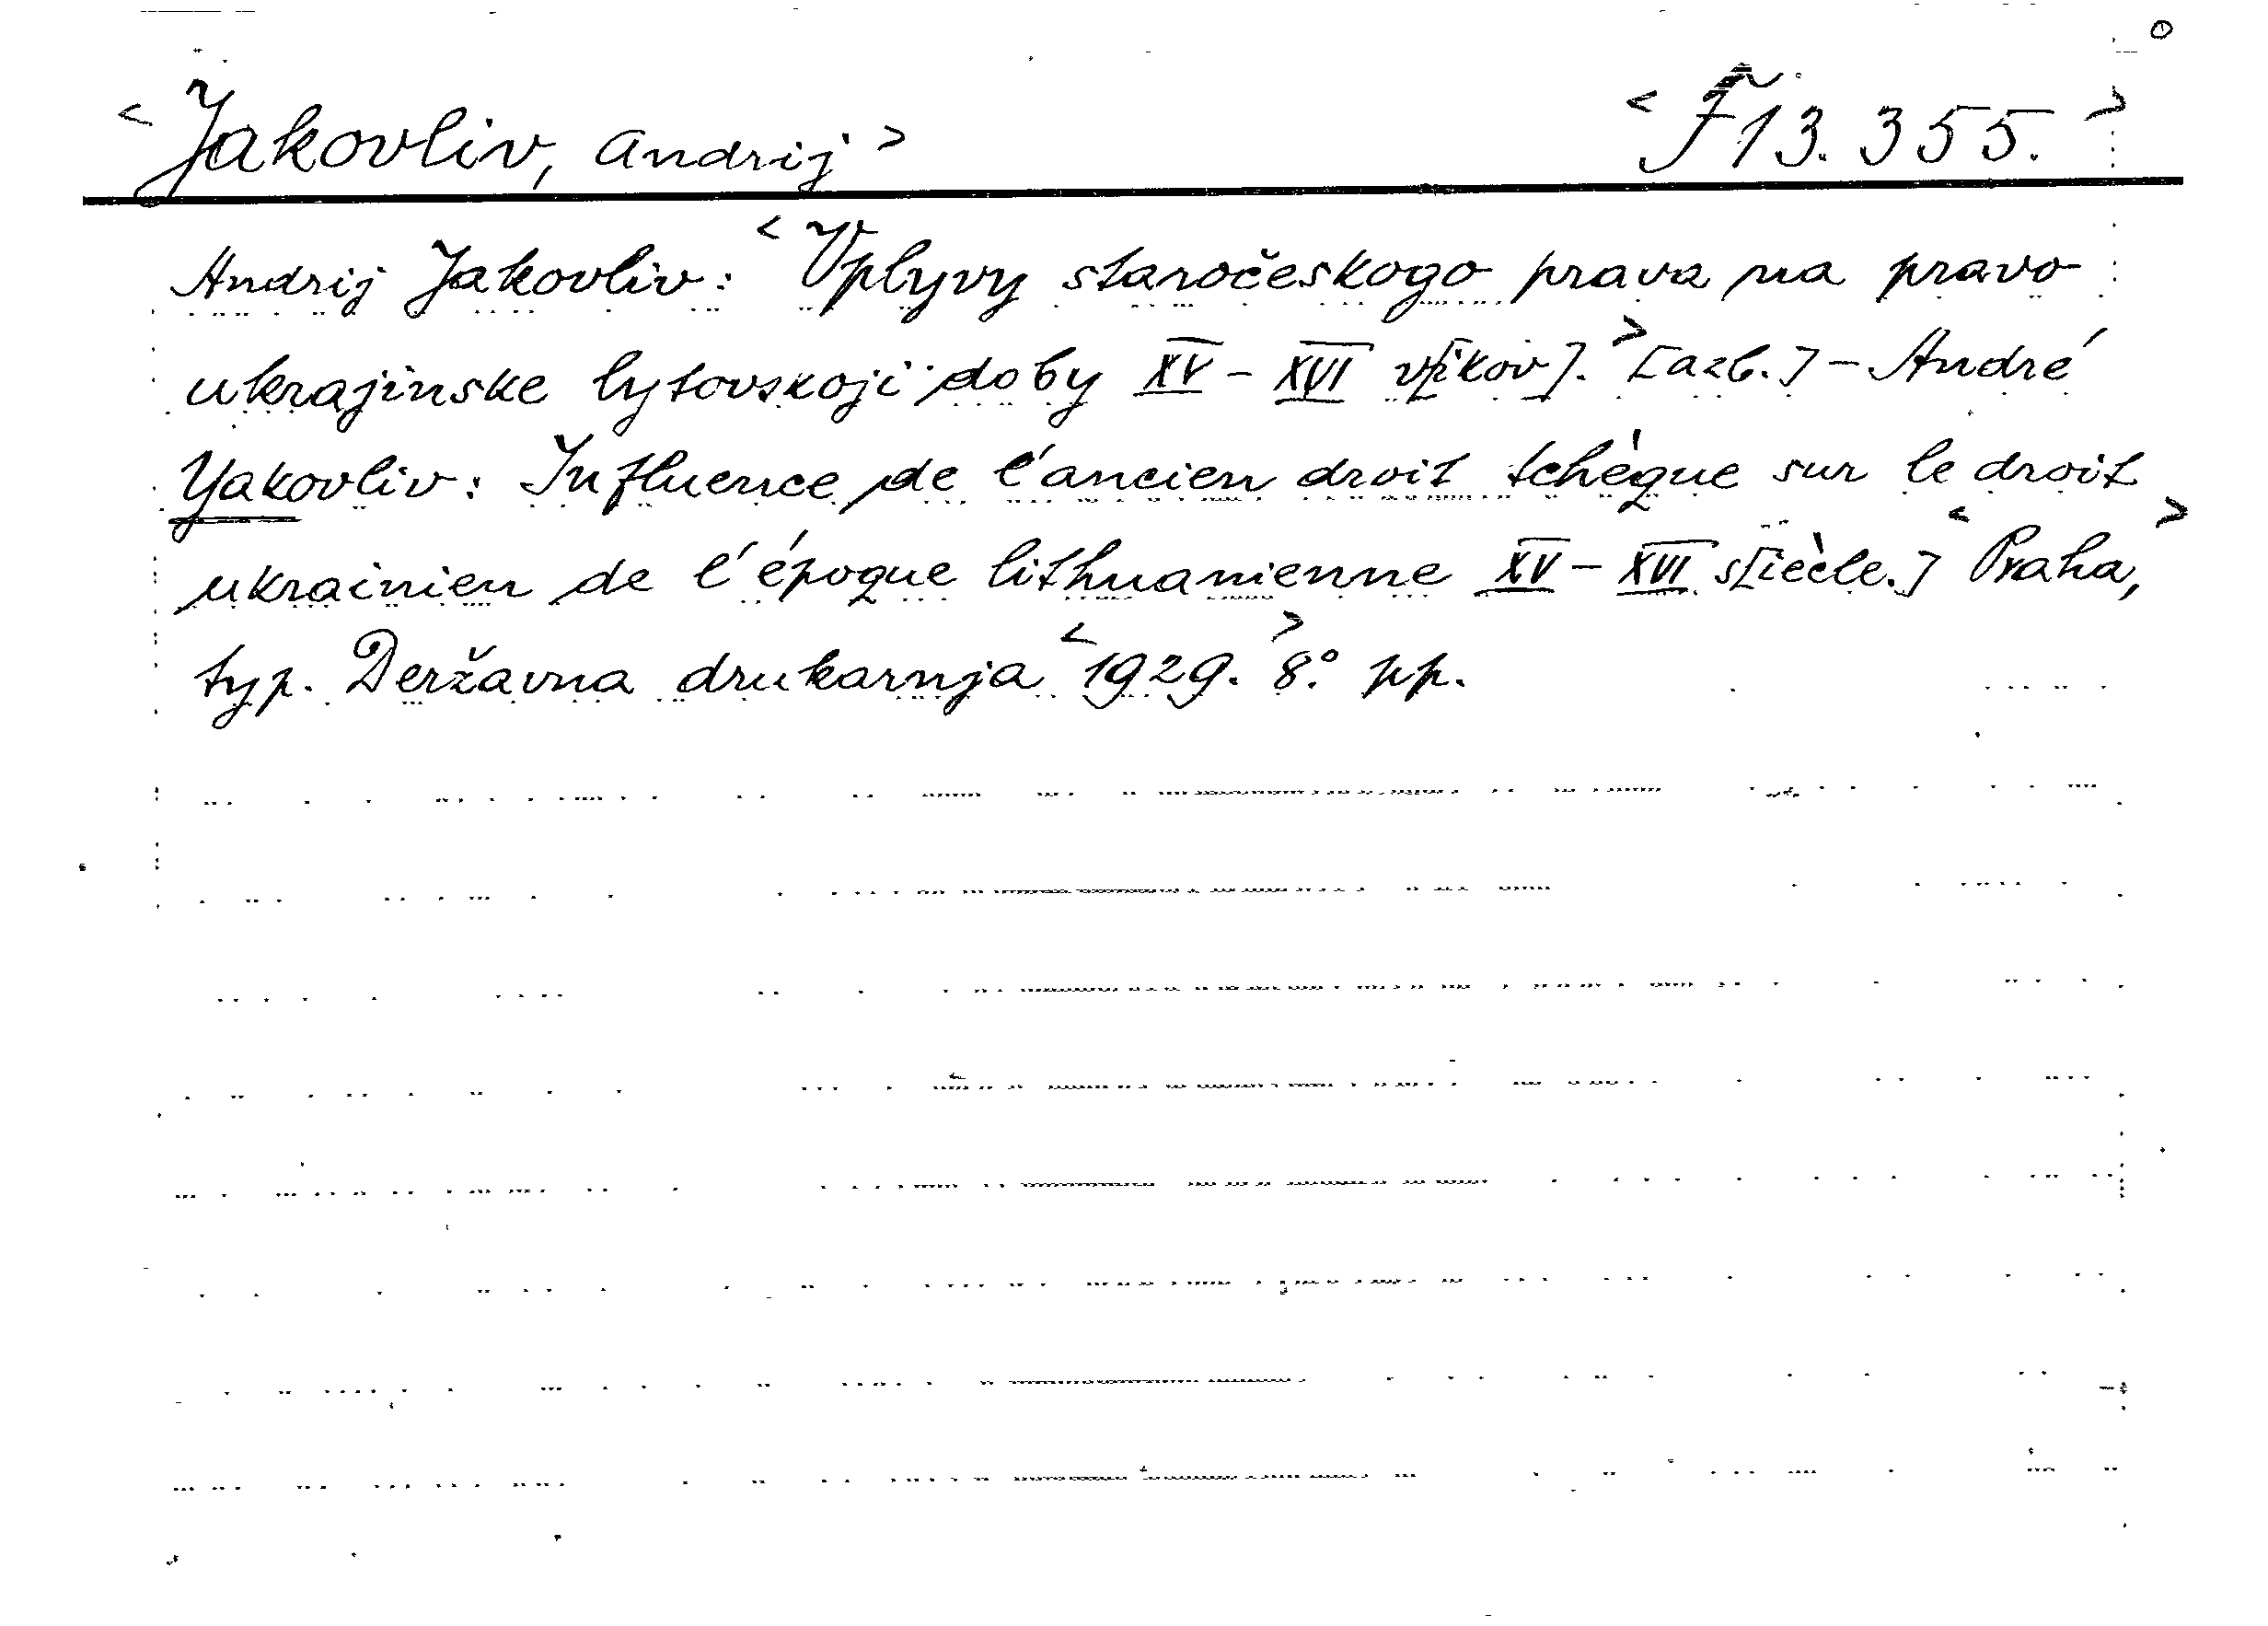 <Jakovliv, Andrij> <F13.355.>
Andrij Jakovliv: <Vplyvy staročeskogo prava na pravo
ukrajinske lytovskoji doby XV-XVI v[ikov].> [azb.] - André
Yakovliv: Influence de l'ancien droit tchèque sur le droit
ukrainien de l'époque lithuanienne XV-XVI s[iècle.] <Praha,>
typ. Deržavna drukarnja <1929.> 8.° pp.